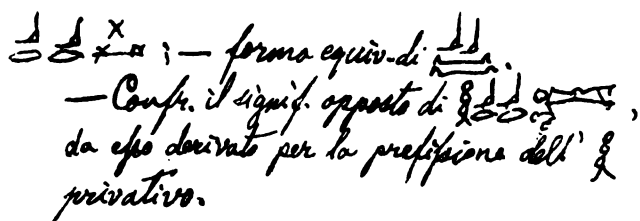 ; — forma equiv. di .
— Confr. il signif. opposto di ,
da eſso derivato per la prefiſsione dell'
privativo.